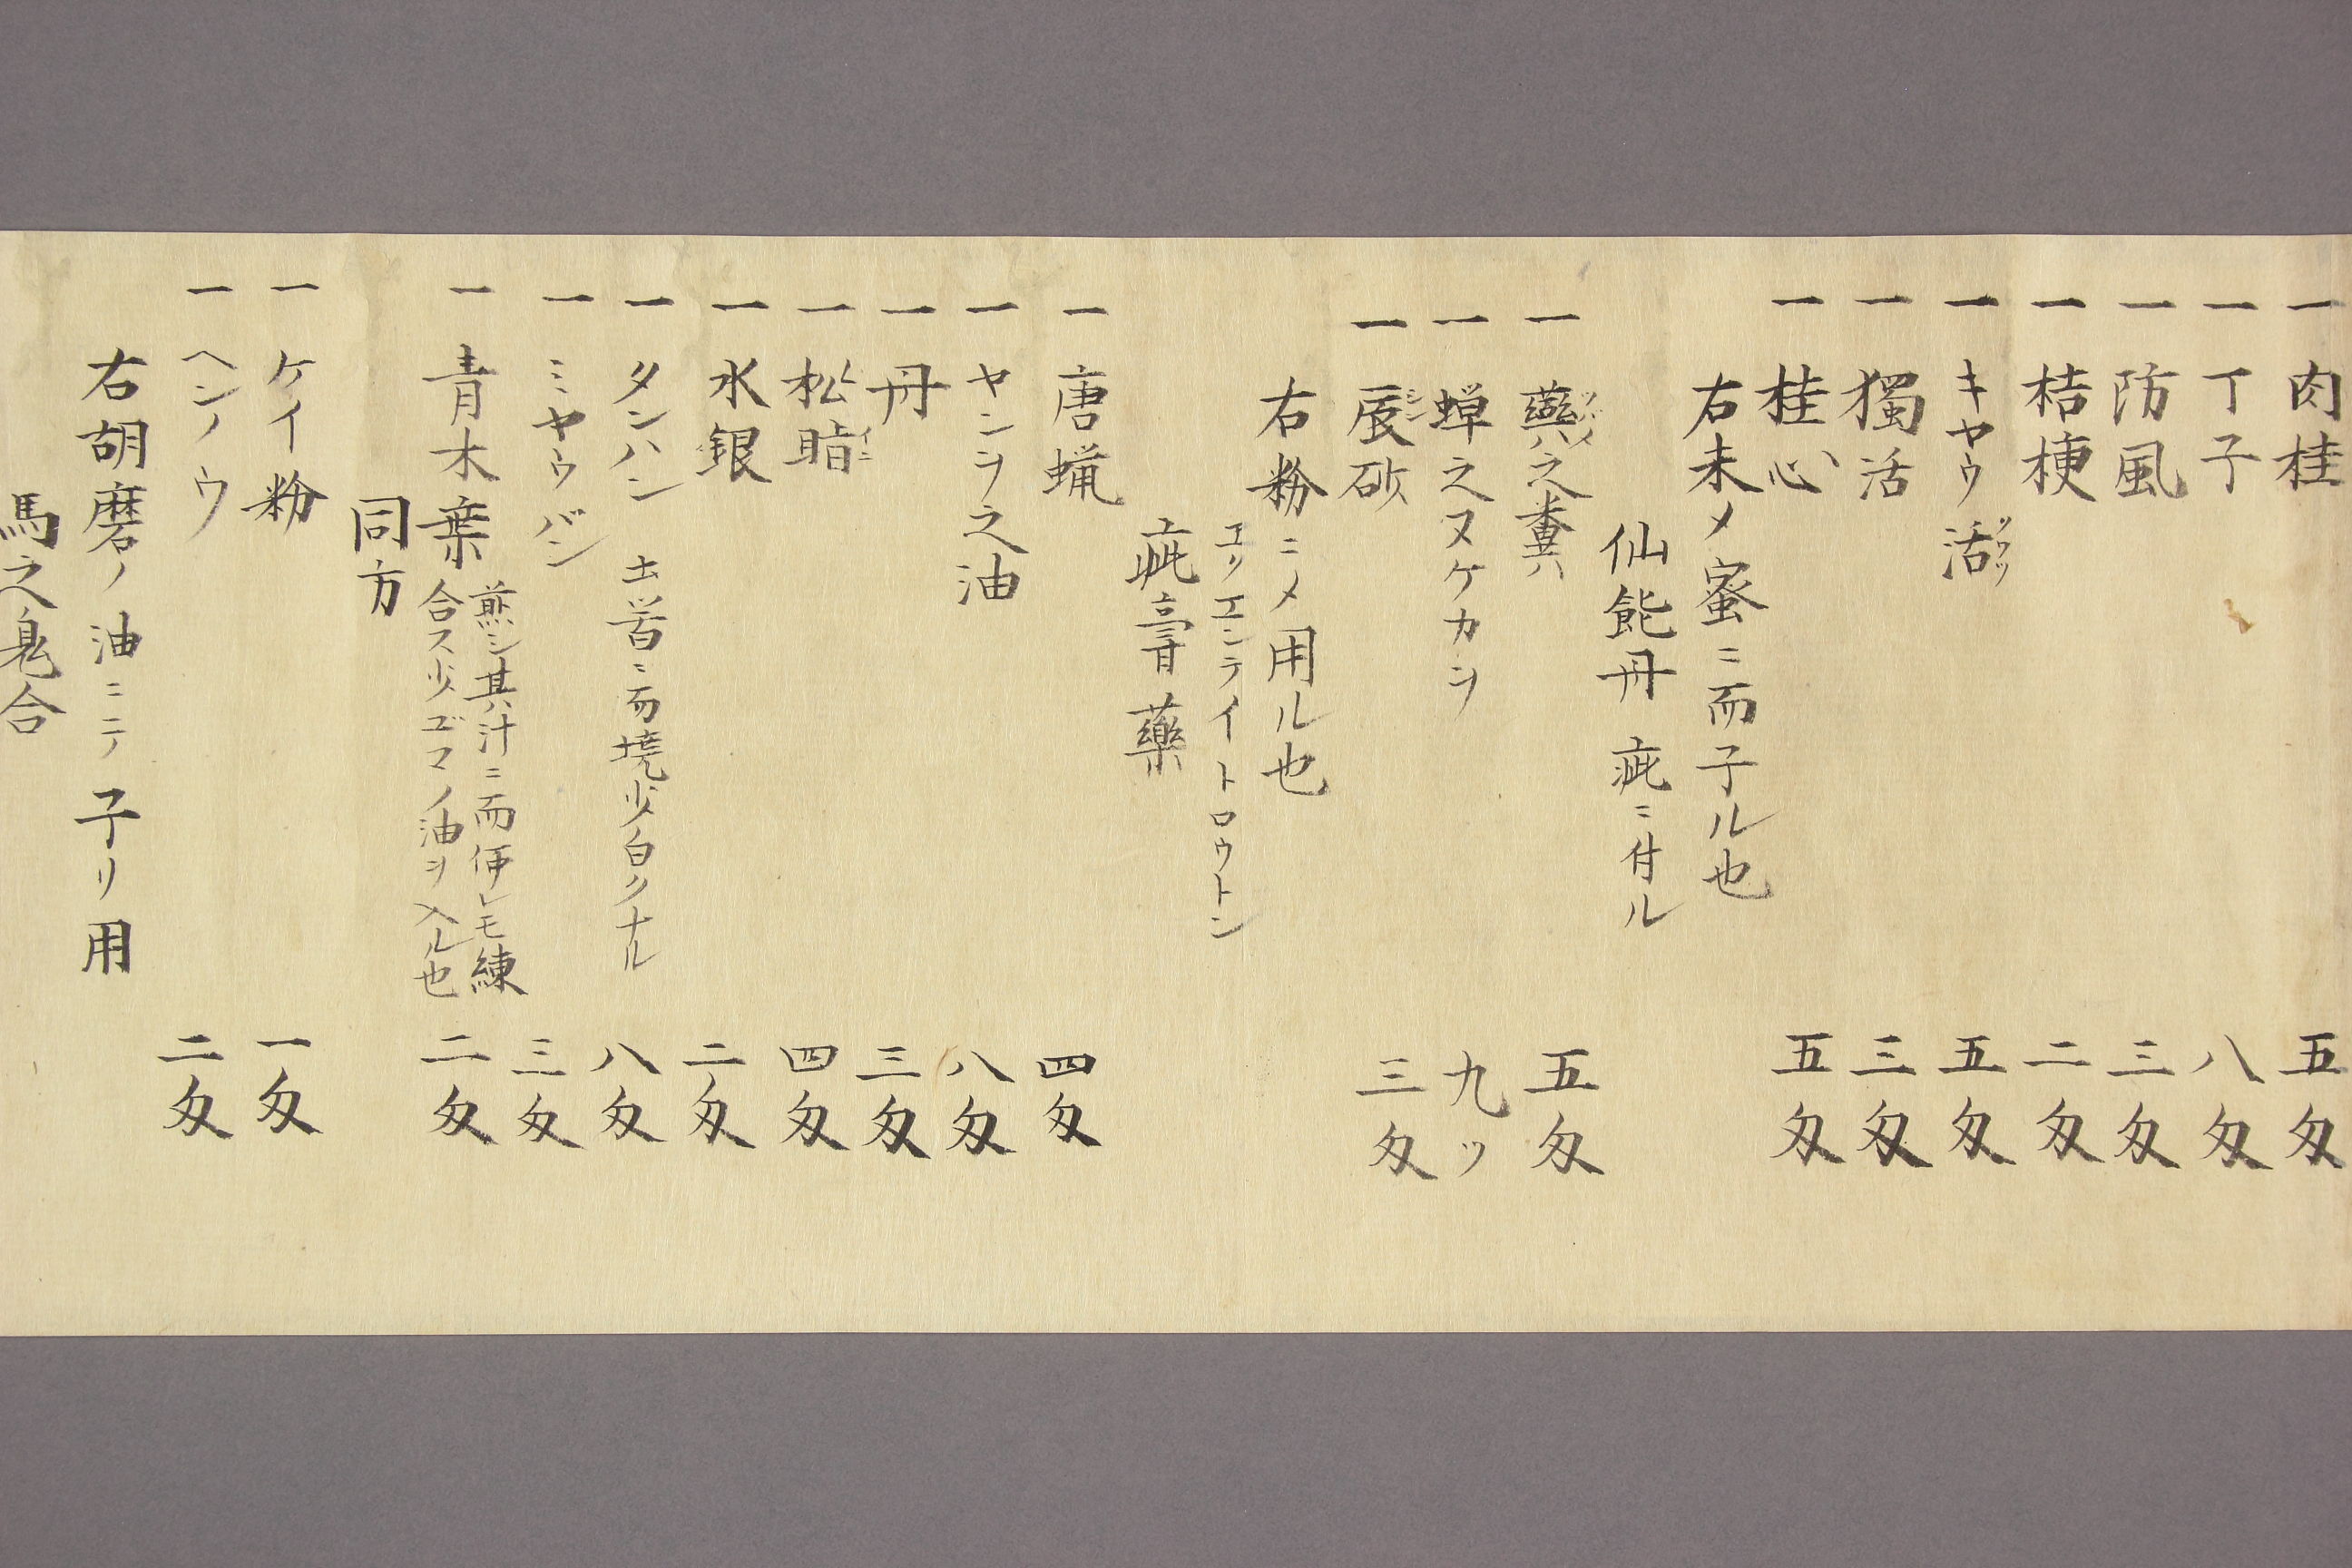 一 肉桂 五匁
一 丁子 八匁
一 防風 三匁
一 桔梗 二匁
一 キヤウ活 五匁
一 獨活 三匁
一 桂心 五匁
右末メ蜜ニ而子ル也
仙能丹 疵ニ付ル
一 之糞 五匁
一 蝉之ヌケカラ 九ツ
一 辰砂 三匁
右粉ニメ用ル也
エリエンテイトロウトン
疵膏藥
一 唐蝋 四匁
一 ヤシヲ之油 八匁
一 丹 三匁
一 松脂 四匁
一 水銀 二匁
一 タンハン 土器ニ而焼少白クナル 八匁
一 ミヤウバン 三匁
一 青木葉 煎シ其汁ニ而何レモ練 二匁
合ス少ゴマノ油ヲ入ル也
同方
一 ケイ粉 一匁
一 ヘンノウ 二匁
右胡磨ノ油ニテ子リ用
馬之合